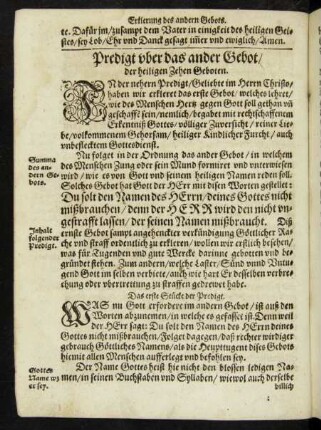 Erklerung des andern Gebots.
ꝛc. Dafür jm/zusampt dem Vater in einigkeit des heiligen Gei-
stes/sey Lob/Ehr vnd Danck gesagt jmer vnd ewiglich/Amen.
Predigt vber das ander Gebot/
der heiligen Zehen Geboten.
IN der nehern Predigt/Geliebte im Herrn Christo/
haben wir erkleret das erste Gebot/welches lehret/
wie des Menschen Hertz gegen Gott soll gethan vñ
geschafft sein/nemlich/begabet mit rechtschaffenem
Erkentniß Gottes/völliger Zuversicht/reiner Lie-
be/volkommenem Gehorsam/heiliger Kindlicher Furcht/auch
vnbeflecktem Gottesdienst.
Nu folget in der Ordnung das ander Gebot/in welchem
Summa
des an-
dern Ge-
bots.
des Menschen Zung oder sein Mund formiret vnd vnterwiesen
wird/wie es von Gott vnd seinem heiligen Namen reden soll.
Solches Gebot hat Gott der HErr mit disen Worten gestellet:
Du solt den Namen des HErrn/deines Gottes nicht
mißbrauchen/denn der HERR wird den nicht vn-
gestrafft lassen/der seinen Namen mißbraucht. Diß
Inhalt
folgender
Predigt.
ernste Gebot sampt angehenckter verkündigung Göttlicher Ra-
che vnd straff ordentlich zu erkleren/wollen wir erstlich besehen/
was für Tugenden vnd gute Wercke darinne geboten vnd be-
gründet stehen. Zum andern/welche Laster/Sünd vnnd Vntu-
gend Gott im selben verbiete/auch wie hart Er desselben verbre-
chung oder vbertrettung zu straffen gedrewet habe.
Das erste Stück der Predigt.
WAS nu Gott erforder im andern Gebot/ist auß den
Worten abzunemen/in welche es gefasset ist. Denn weil
der HErr sagt: Du solt den Namen des HErrn deines
Gottes nicht mißbrauchen/Folget dagegen/daß rechter wirdiger
gebrauch Göttliches Namens/als die Heupttugent dises Gebots
hiemit allen Menschen aufferlegt vnd befohlen sey.
Der Name Gottes heist hie nicht den blossen ledigen Na-
Gottes
Name wz
er sey.
men/in seinen Buchstaben vnd Syllaben/wiewol auch derselbe
billich